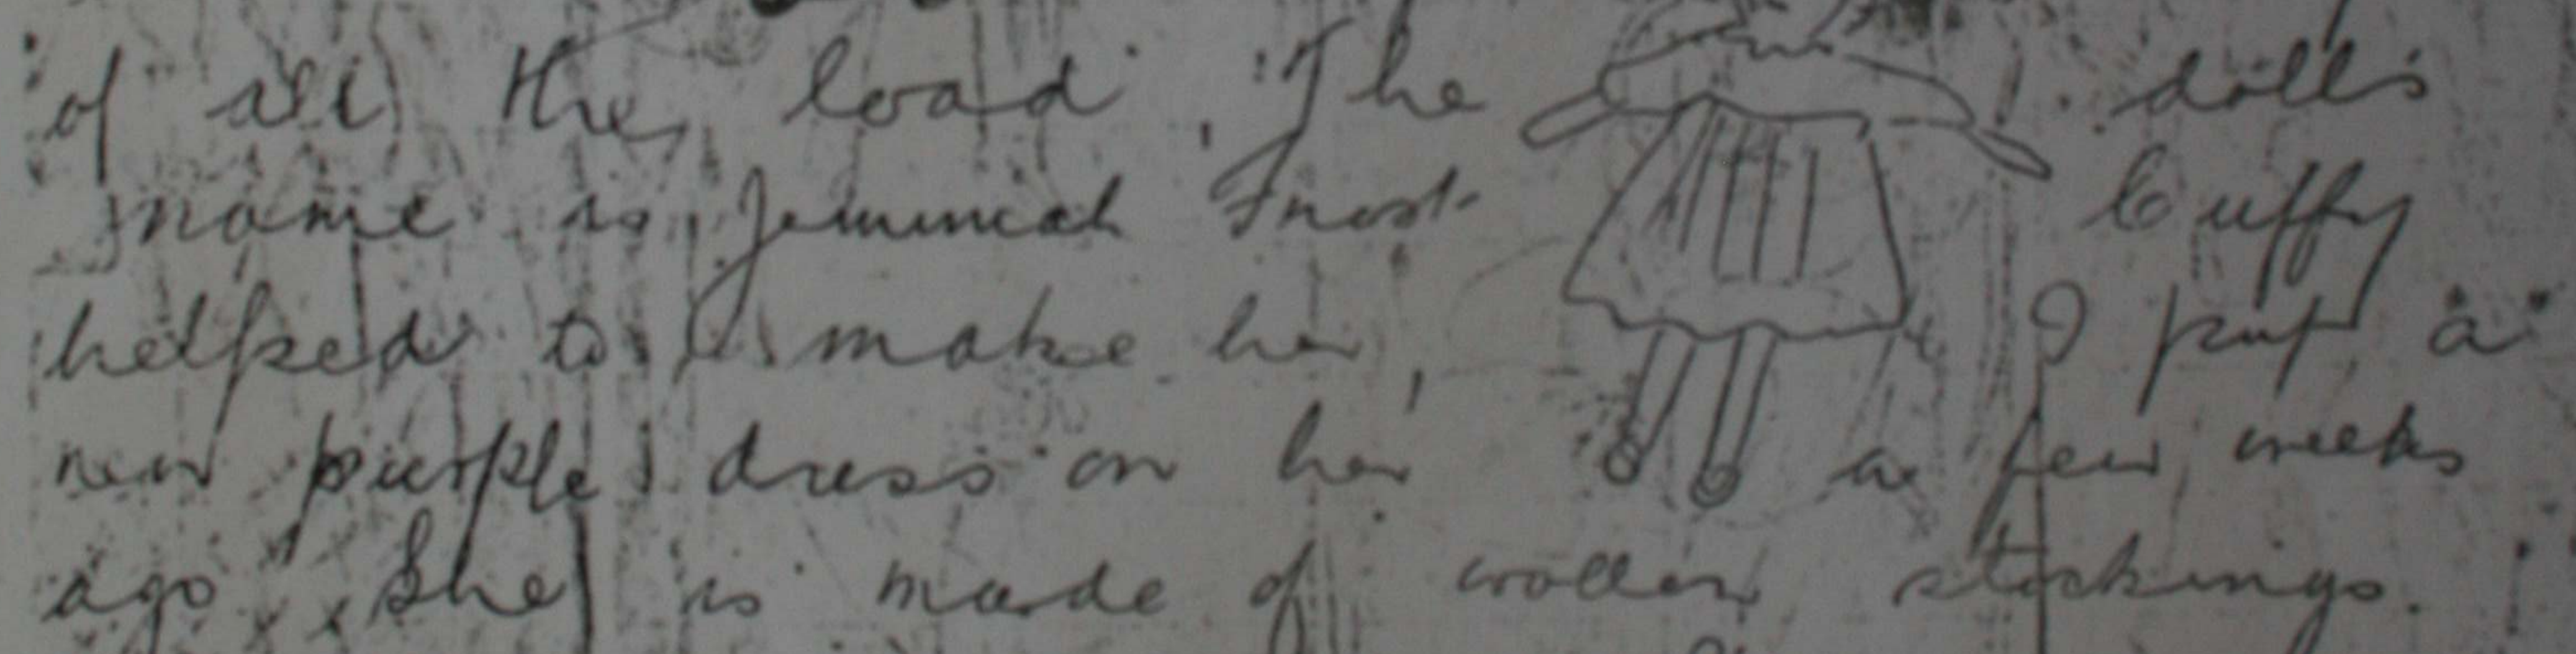 of all the load. The dolls
name is Jemimah Frost Cuffy
helped to make her, I put a
new purple dress on her a few weeks
ago She is made of wollen stockings.